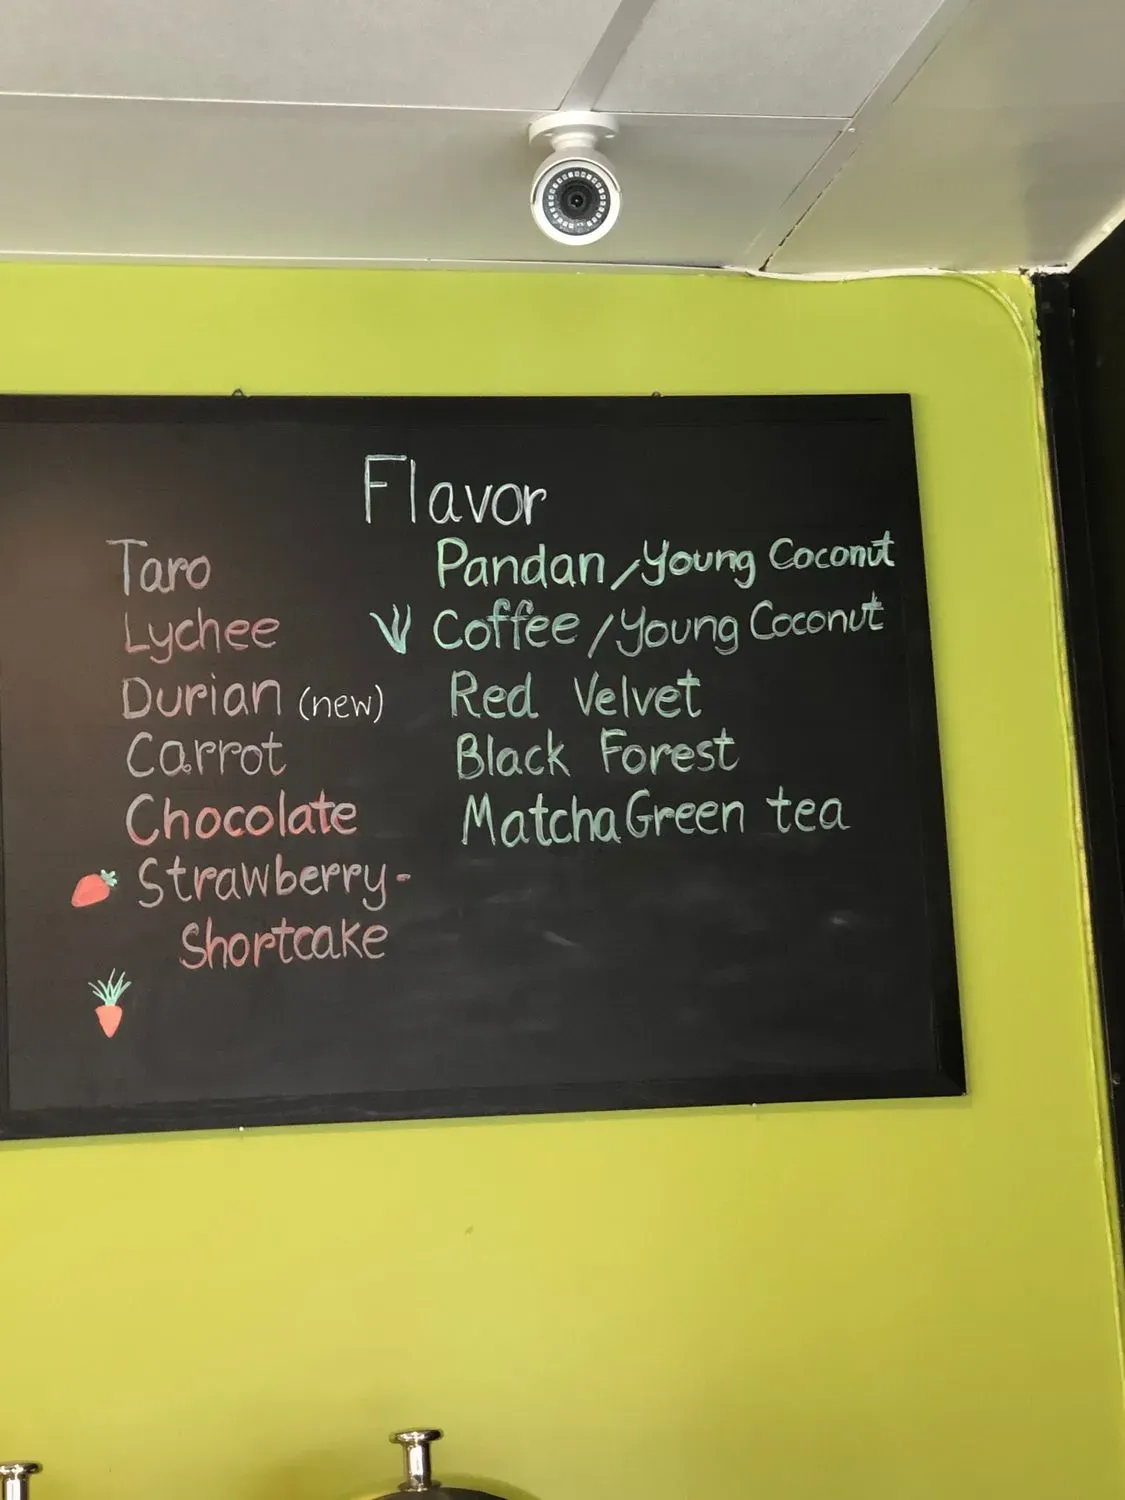 Flavor
Taro
Lychee
Durian (new)
Carrot
Chocolate
Strawberry-
Shortcake
Pandan/Young Coconut
Coffee/Young Coconut
Red Velvet
Black Forest
Matcha Green tea